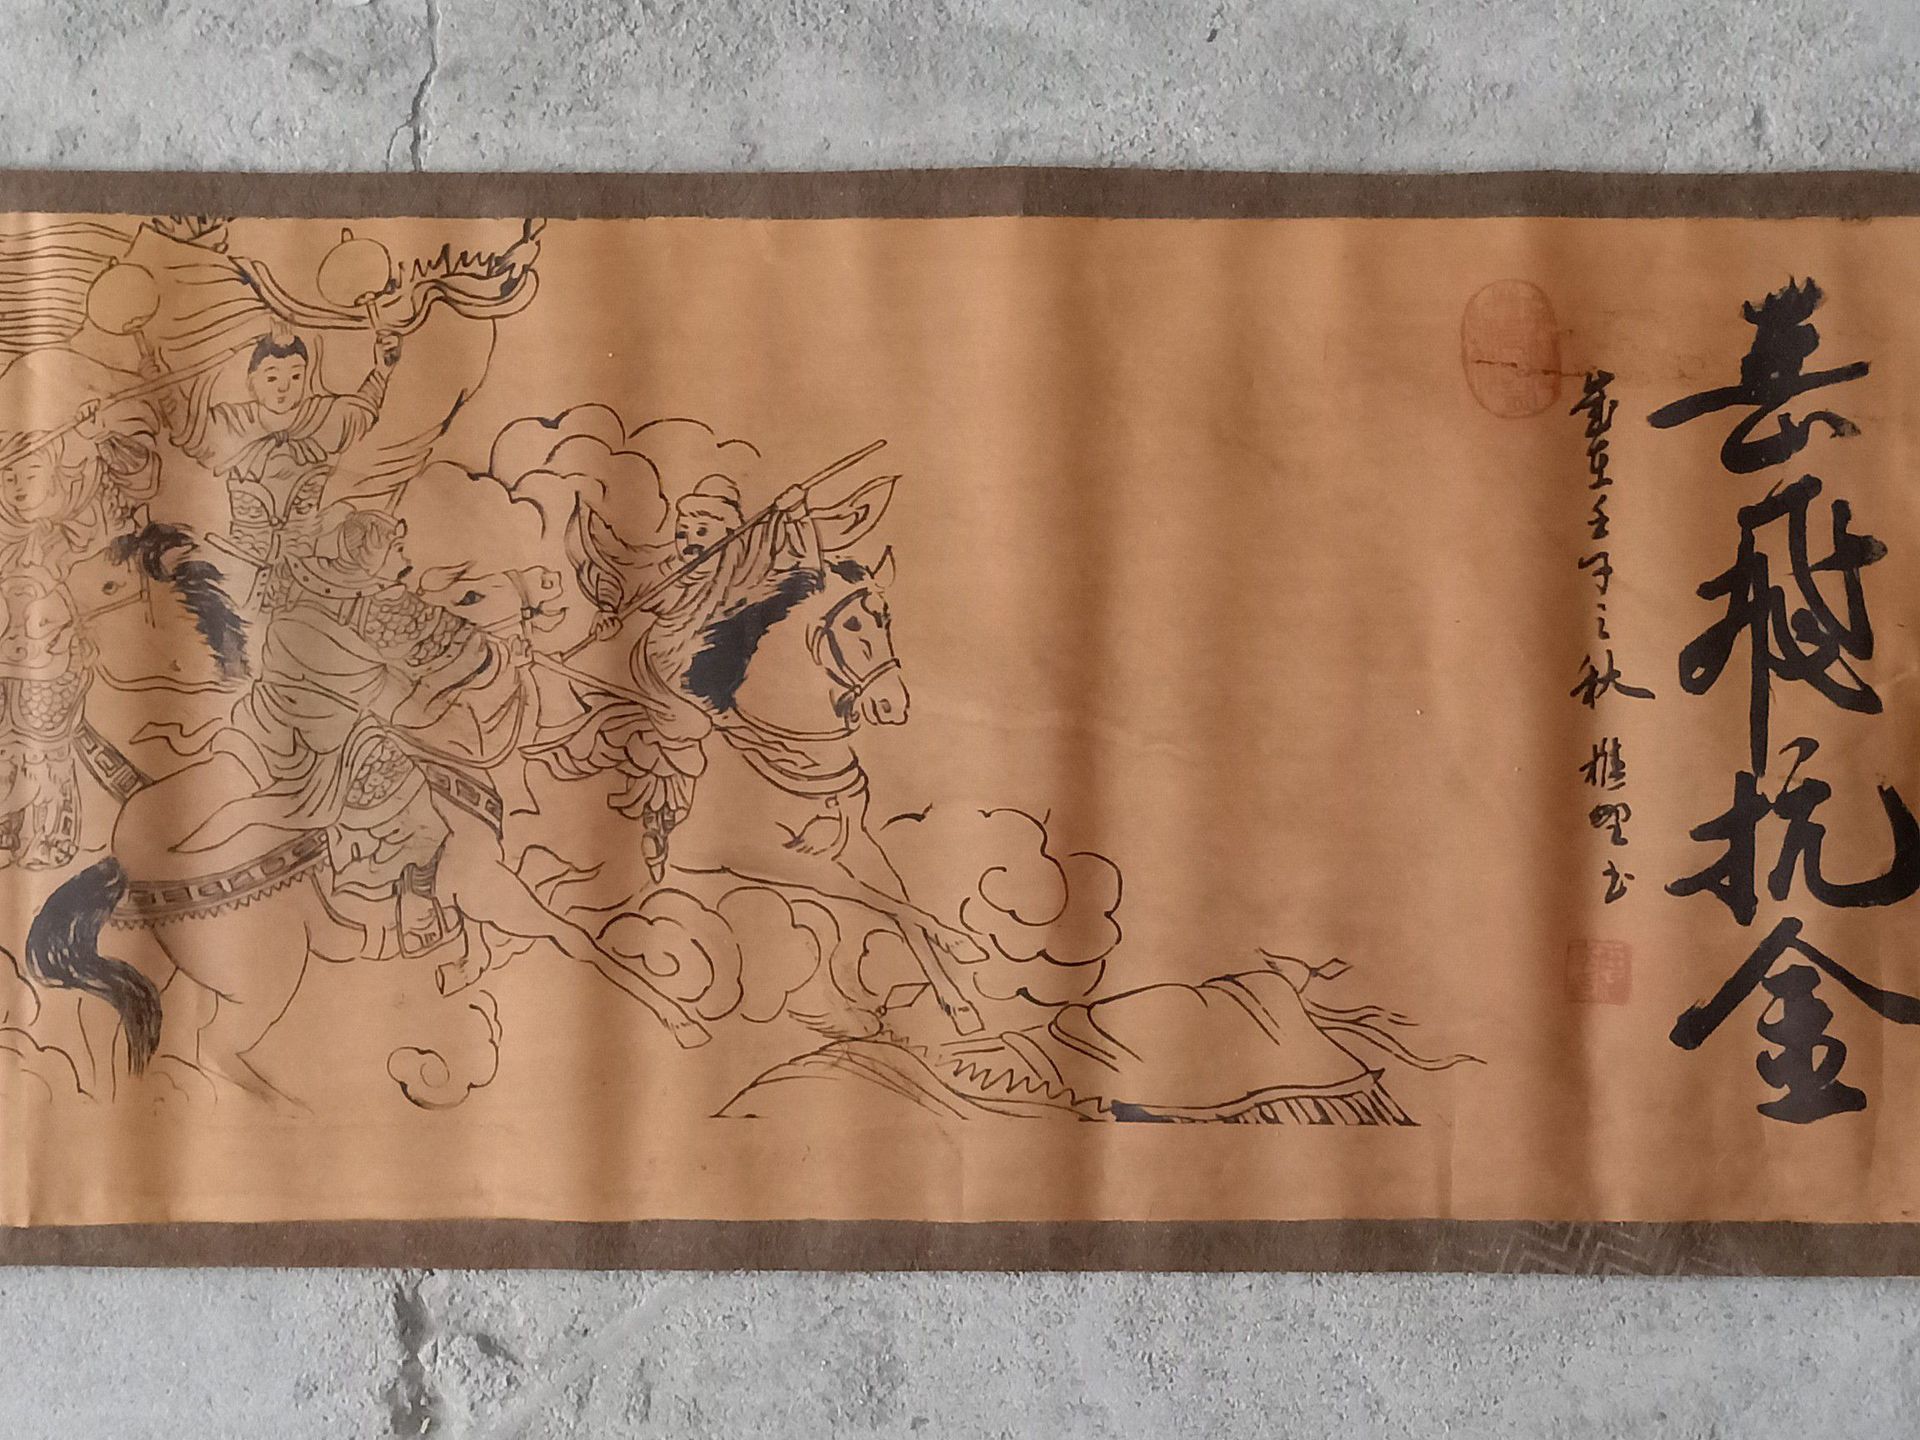 岳飛抗金
歲在壬子之秋 樵野书